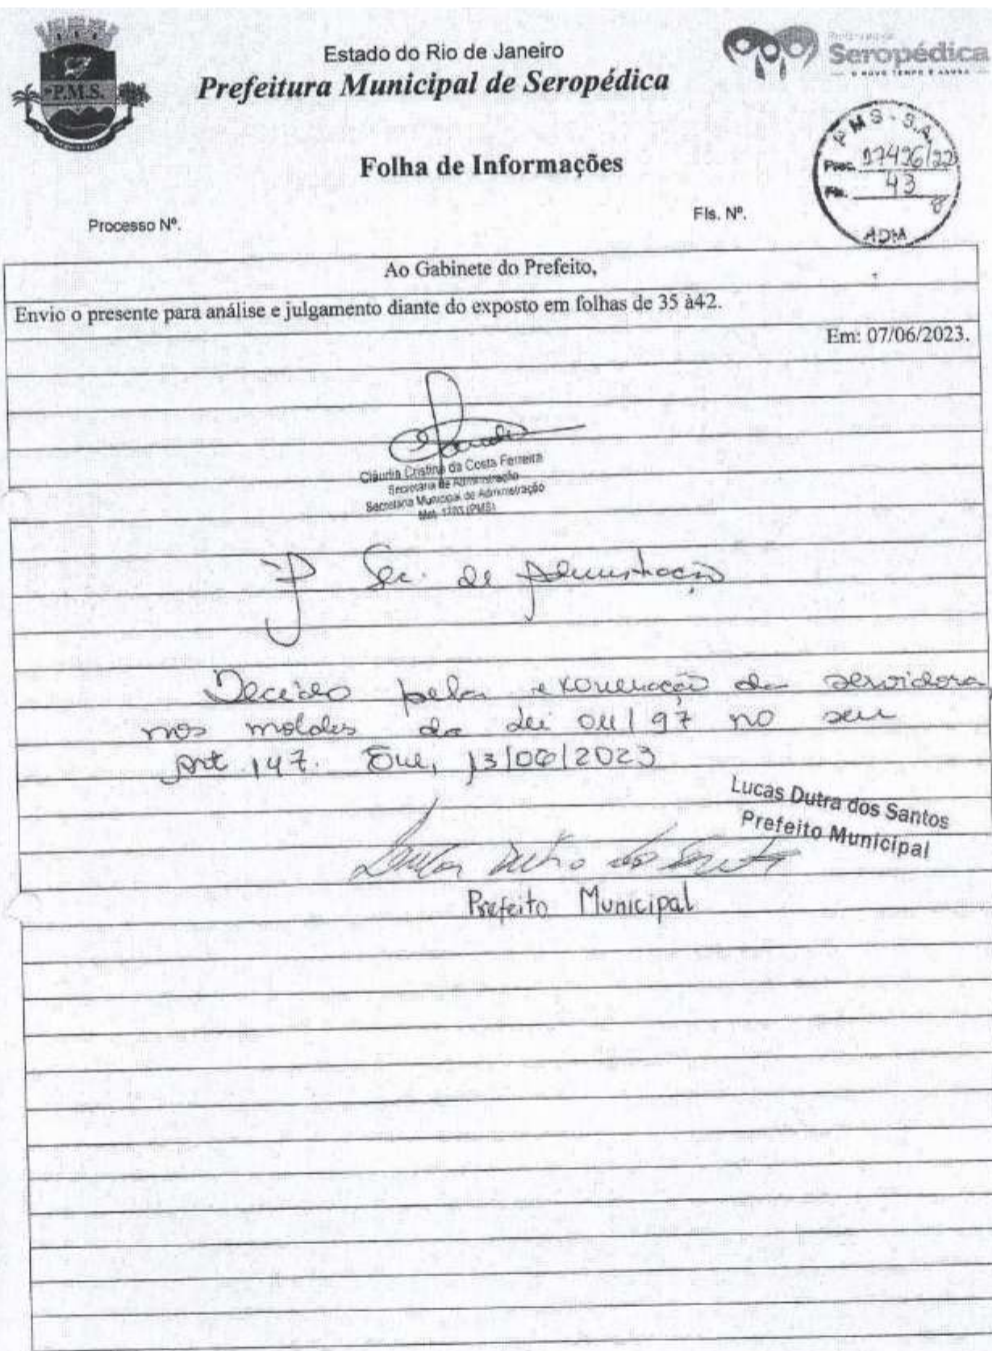 Estado do Rio de Janeiro
Prefeitura Municipal de Seropédica
P.M.S.
Seropédica
Folha de Informações
PMS - S.A.
Proc. 17426/22
Fls. 43
ADM
Processo Nº.
Fls. Nº.
Ao Gabinete do Prefeito,
Envio o presente para análise e julgamento diante do exposto em folhas de 35 à42.
Em: 07/06/2023.
Cláudia Cristina da Costa Ferreira
Secretária de Administração
Secretaria Municipal de Administração
Mat. (PMS)
Sec. de Administração
Decido pela exoneração da servidora
nos moldes da Lei 011/97 no seu
Art. 147. Em, 13/06/2023
Lucas Dutra dos Santos
Prefeito Municipal
Lucas Dutra dos Santos
Prefeito Municipal